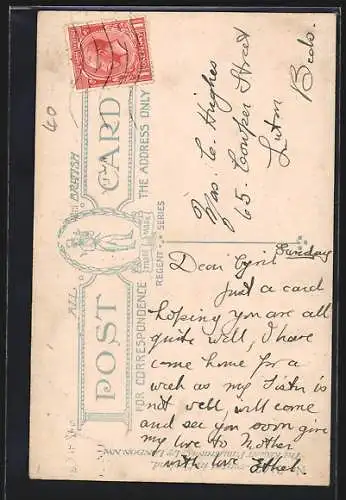 60
ALL BRITISH
POST CARD
TRADE MARK
REGENT SERIES
FOR CORRESPONDENCE
THE ADDRESS ONLY
Mas. C. Hughes
65. Cowper Street
Luton
Beds.
Sunday
Dear Cyril
Just a card
hoping you are all
quite well, I have
come home for a
week as my Sister is
not well, will come
and see you soon give
my love to Mother
with love Ethel